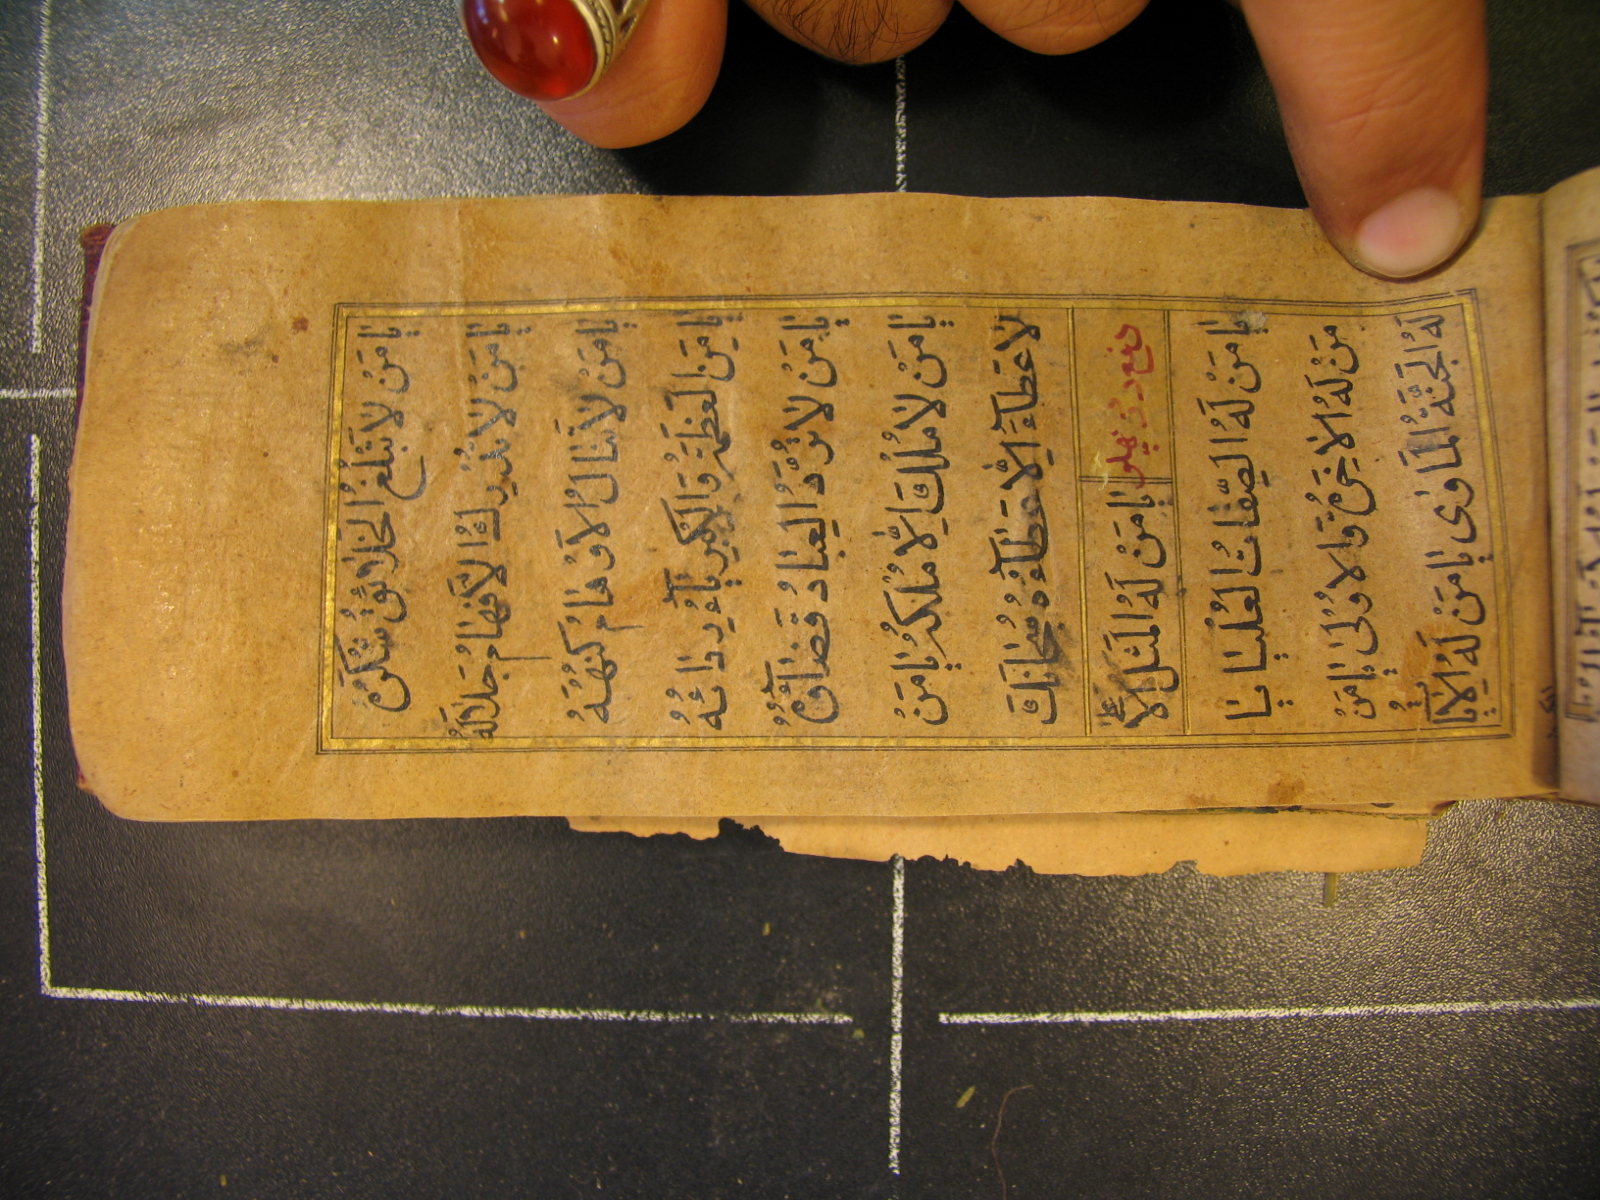 يٰا مَنْ لٰا تَبْلُغُ الْخَلٰائِقُ شُكْرَهُ
يٰا مَنْ لٰا تُدْرِكُ الْاَفْهٰامُ جَلٰالَهُ
يٰا مَنْ لٰا تَنٰالُ الْاَوْهٰامُ كُنْهَهُ
يٰا مَنِ الْعَظَمَةُ وَالْكِبْرِيٰآءُ رِدٰائُهُ
يٰا مَنْ لٰا تَرُدُّ الْعِبٰادُ قَضٰآؤُهُ
يٰا مَنْ لٰا مُلْكَ اِلّٰا مُلْكُهُ يٰا مَنْ
لٰا عَطٰآءَ اِلّٰا عَطٰآؤُهُ سُبْحٰانَكَ
دفع درد پهلو
يٰا مَنْ لَهُ الْمَثَلُ الْاَعْلىٰ
يٰا مَنْ لَهُ الصِّفٰاتُ الْعُلْيٰا يٰا
مَنْ لَهُ الْاٰخِرَةُ وَالْاُولىٰ يٰا مَنْ
لَهُ الْجَنَّةُ الْمَاْوىٰ يٰا مَنْ لَهُ الْاٰيٰاتُ